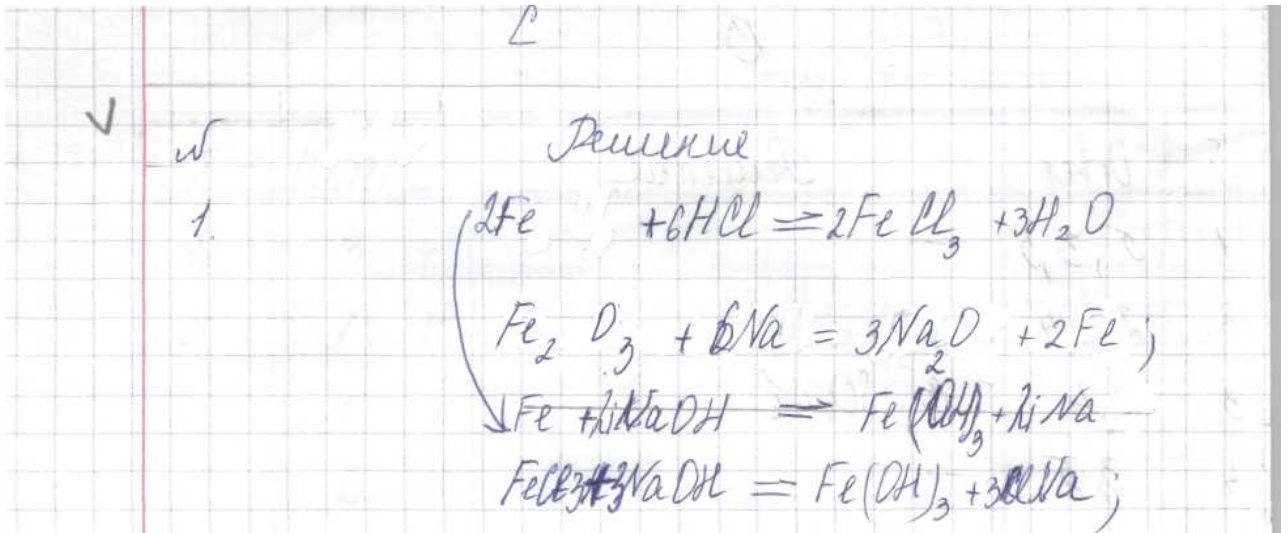 C
V
№ Решение
1. 2Fe +6HCl = 2FeCl₃ +3H₂O
Fe₂O₃ + 6Na = 3Na₂O + 2Fe;
Fe + NaOH = Fe(OH)₃ + Na
FeCl3+3NaOH = Fe(OH)₃ +3ClNa;